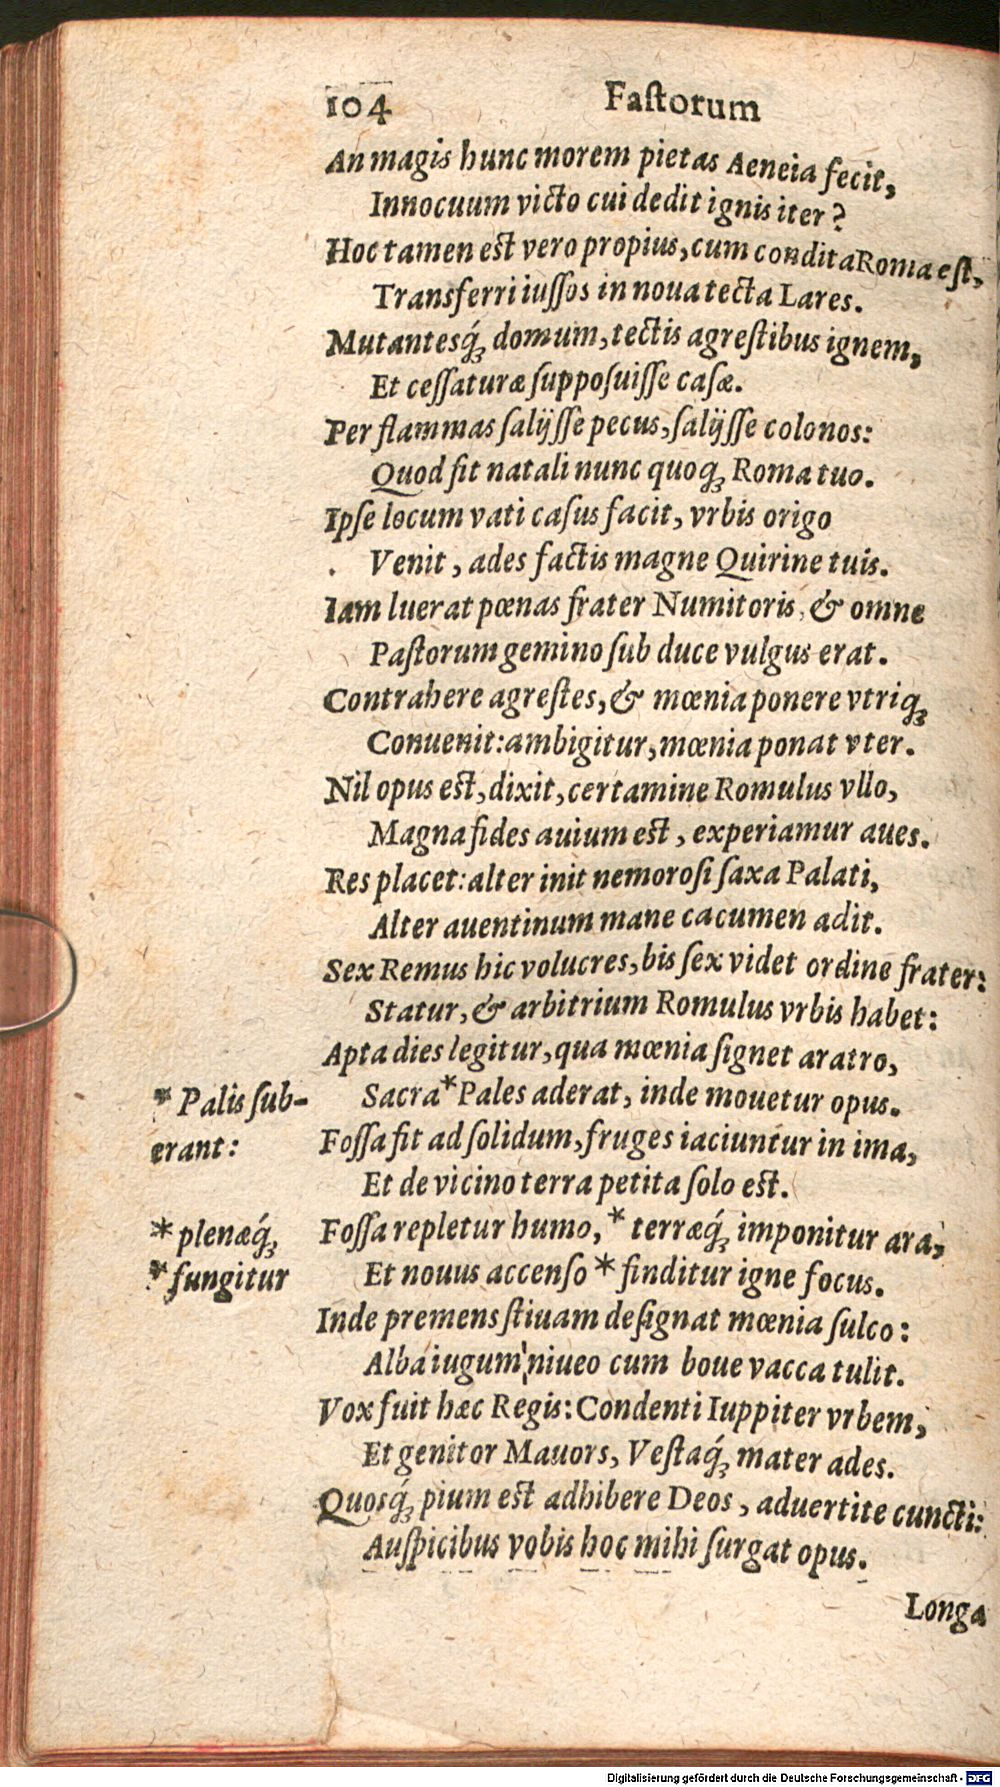 104 Faſtorum
An magis hunc morem pietas Aeneia fecit,
Innocuum victo cui dedit ignis iter?
Hoc tamen est vero propius, cum condita Roma eſt,
Transferri iuſſos in noua tecta Lares.
Mutantesq́ꝫ domum, tectis agreſtibus ignem,
Et ceſſaturæ ſuppoſuiſſe caſæ.
Per flammas ſalijſſe pecus, ſalijſſe colonos:
Quod fit natali nunc quoqꝫ Roma tuo.
Ipſe locum vati caſus facit, vrbis origo
Venit, ades factis magne Quirine tuis.
Iam luerat pœnas frater Numitoris, & omne
Paſtorum gemino ſub duce vulgus erat.
Contrahere agreſtes, & mœnia ponere vtriqꝫ
Conuenit: ambigitur, mœnia ponat vter.
Nil opus est, dixit, certamine Romulus vllo,
Magna fides auium est, experiamur aues.
Res placet: alter init nemoroſi ſaxa Palati,
Alter auentinum mane cacumen adit.
Sex Remus hic volucres, bis ſex videt ordine frater:
Statur, & arbitrium Romulus vrbis habet:
Apta dies legitur, qua mœnia ſignet aratro,
Sacra * Pales aderat, inde mouetur opus.
* Palis ſub-
erant:
Foſſa fit ad ſolidum, fruges iaciuntur in ima,
Et de vicino terra petita ſolo est.
Foſſa repletur humo, * terræq́ꝫ imponitur ara,
* plenæq́ꝫ
Et nouus accenſo * finditur igne focus.
* fungitur
Inde premens ſtiuam deſignat mœnia ſulco:
Alba iugum niueo cum boue vacca tulit.
Vox fuit hæc Regis: Condenti Iuppiter vrbem,
Et genitor Mauors, Veſtaq́ꝫ mater ades.
Quosq́ꝫ pium est adhibere Deos, aduertite cuncti:
Auſpicibus vobis hoc mihi ſurgat opus.
Longa
Digitalisierung gefördert durch die Deutsche Forschungsgemeinschaft - DFG